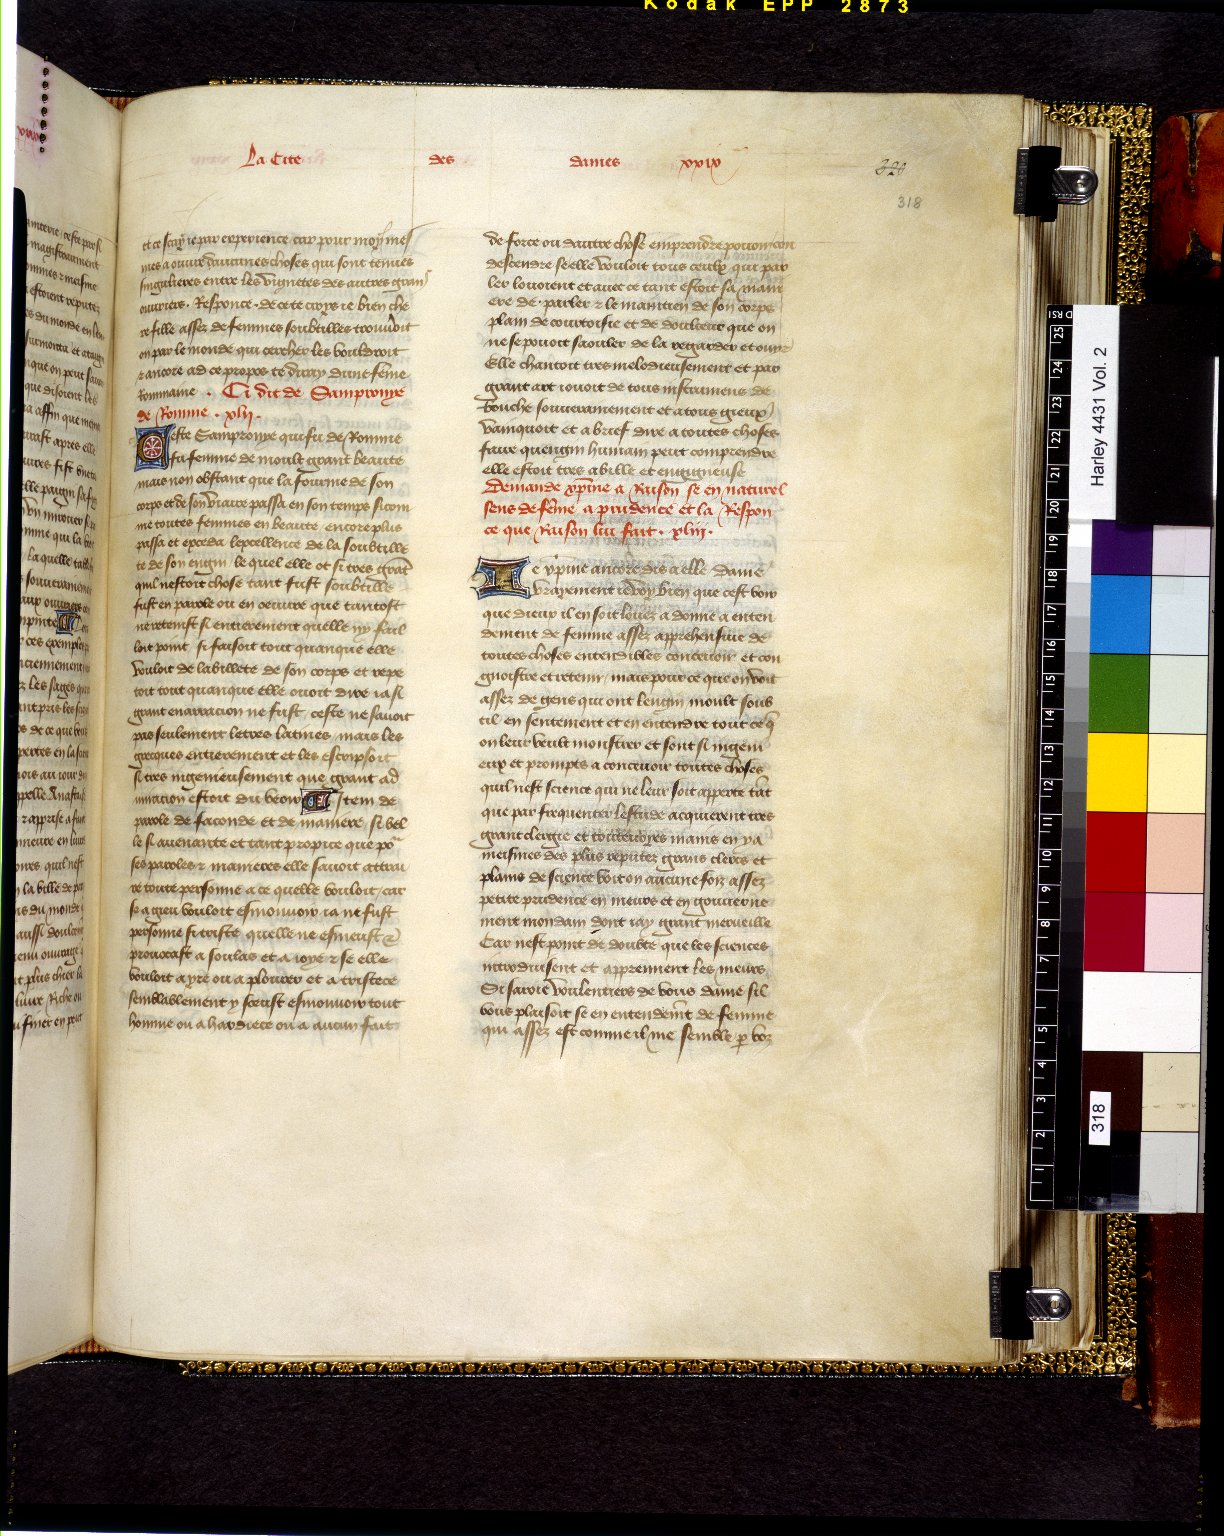 Kodak EPP 2873
La Cite des dames xxix
320
318
et ce scay ie par experience car pour moy mes
mes a ouvré daucunes choses qui sont tenues
singulieres entre les vignetes des autres grans
ouvriers . Responce . de ce te croys ie bien che
re fille assez de femmes soubtilles trouveroit
on par le monde qui cercher les vouldroit
et ancore ad ce propos te diray dune feme
Rommaine . Ci dit de Sampronye
de Romme . xlii .
Ceste Sampronye qui fu de Romme
fu femme de moult grant beaute
mais non obstant que la fourme de son
corps et de son viaire passa en son temps si com
me toutes femmes en beaute encore plus
passa et exceda lexcellence de la soubtille
te de son engin le quel elle ot si tres grant
quil nestoit chose tant fust soubtille
fust en parole ou en oeuvre que tantost
ne retenist si entierement quelle ny fail
loit point si faisoit tout quanque elle
vouloit de labillete de son corps et repe
toit tout quanque elle ouoit dire ia si
grant enarracion ne fust . ceste ne savoit
pas seulement letres latines mais les
grecques entierement et les escripsoit
si tres ingenieusement que grant ad
miracion estoit du veoir Item de
parole de faconde et de maniere si bel
le si avenante et tant propice que par
ses paroles et manieres elle savoit attrai
re toute personne a ce quelle vouloit / car
se a gieu vouloit esmouvoir ia ne fust
personne si triste quelle ne esmeust et
provocast a soulas et a ioye et se elle
vouloit a yre ou a plourer et a tristece
semblablement y sceust esmouvoir tout
homme ou a hardiece ou a aucun fait
de force ou dautre chose emprendre pouoit con
descendre se elle vouloit tous ceulx qui par
ler louoient et avec ce tant estoit sa mani
ere de parler et le maintien de son corps
plain de courtoisie et de doulceur que on
ne se pouoit saouler de la regarder et ouir
Elle chantoit tres melodieusement et par
grant art iouoit de tous instrumens de
bouche souverainement et a tous gieux
vainquoit et a brief dire a toutes choses
faire quengin humain peut comprendre
elle estoit tres abille et engigneuse
Demande xpine a Raison se en naturel
sens de feme a prudence et la Respon
ce que Raison lui fait . xliii .
Ie xpine ancore dis a elle dame
vrayement ie voy bien que cest voir
que dieux il en soit louez a donne a enten
dement de femme assez apprehensive de
toutes choses entendibles concevoir et con
gnoistre et retenir / mais pour ce que on voit
assez de gens qui ont lengin moult soub
til en sentement et en entendre tout ce que
on leur veult monstrer et sont si ingeni
eux et prompts a concevoir toutes choses
quil nest science qui ne leur soit apperte tant
que par frequenter lestude acquierent tres
grant clergie et toutevoyes mains en ya
meismes des plus reputez grans clercs et
plains de science voit on aucune foiz assez
petite prudence en meurs et en gouverne
ment mondain dont iay grant merveille
Car nest point de doubte que les sciences
introduisent et apprennent les meurs
Si saroie voulentiers de vous dame sil
vous plaisoit se en entendemt de femme
qui assez est comme il me semble p voz
Harley 4431 Vol. 2
318